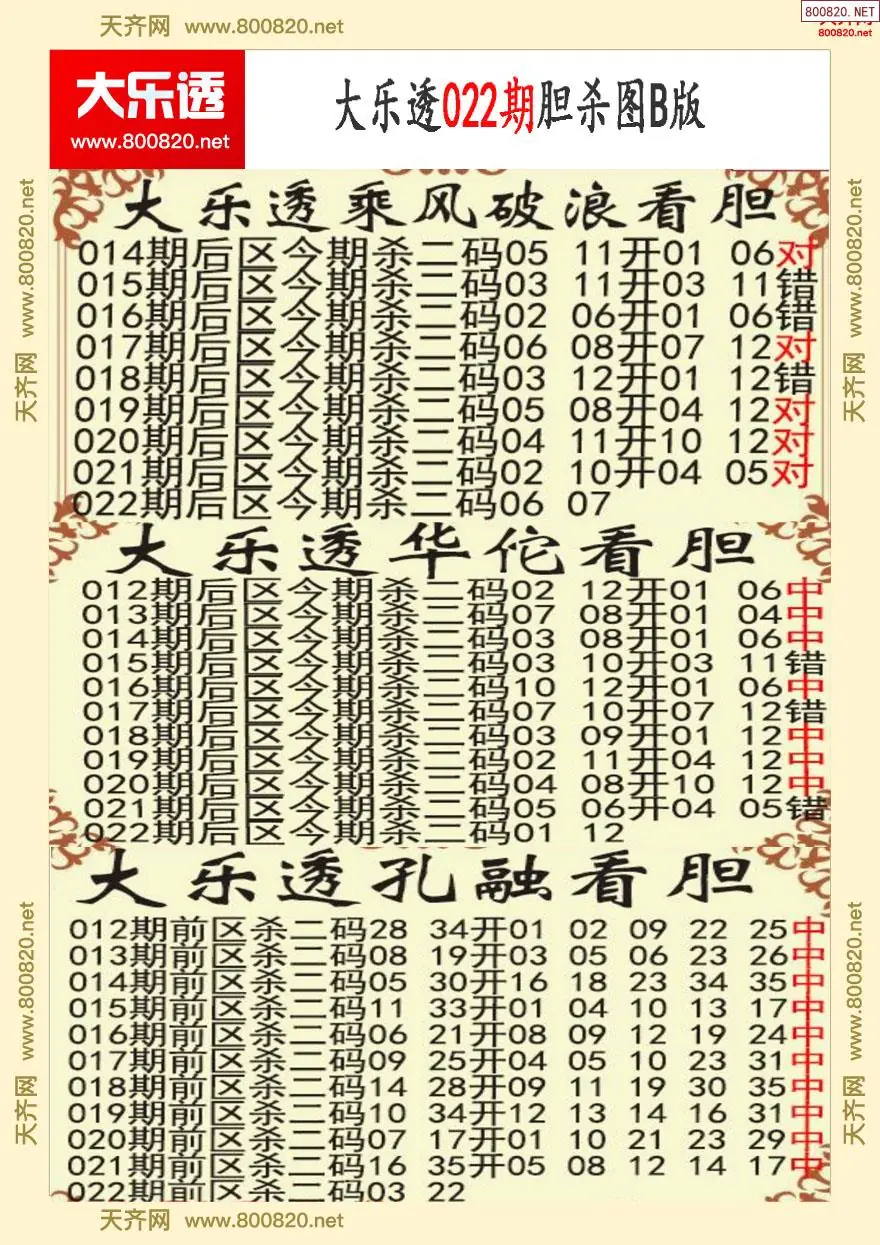 天齐网 www.800820.net
800820.NET
800820.net
大乐透
www.800820.net
大乐透022期胆杀图B版
天齐网 www.800820.net
天齐网 www.800820.net
大乐透乘风破浪看胆
014期后区今期杀二码05 11开01 06对
015期后区今期杀二码03 11开03 11错
016期后区今期杀二码02 06开01 06错
017期后区今期杀二码06 08开07 12对
018期后区今期杀二码03 12开01 12错
019期后区今期杀二码05 08开04 12对
020期后区今期杀二码04 11开10 12对
021期后区今期杀二码02 10开04 05对
022期后区今期杀二码06 07
大乐透华佗看胆
012期后区今期杀二码02 12开01 06中
013期后区今期杀二码07 08开01 04中
014期后区今期杀二码03 08开01 06中
015期后区今期杀二码03 10开03 11错
016期后区今期杀二码10 12开01 06中
017期后区今期杀二码07 10开07 12错
018期后区今期杀二码03 09开01 12中
019期后区今期杀二码02 11开04 12中
020期后区今期杀二码04 08开10 12中
021期后区今期杀二码05 06开04 05错
022期后区今期杀二码01 12
大乐透孔融看胆
012期前区杀二码28 34开01 02 09 22 25中
013期前区杀二码08 19开03 05 06 23 26中
014期前区杀二码05 30开16 18 23 34 35中
015期前区杀二码11 33开01 04 10 13 17中
016期前区杀二码06 21开08 09 12 19 24中
017期前区杀二码09 25开04 05 10 23 31中
018期前区杀二码14 28开09 11 19 30 35中
019期前区杀二码10 34开12 13 14 16 31中
020期前区杀二码07 17开01 10 21 23 29中
021期前区杀二码16 35开05 08 12 14 17中
022期前区杀二码03 22
天齐网 www.800820.net
天齐网 www.800820.net
天齐网 www.800820.net